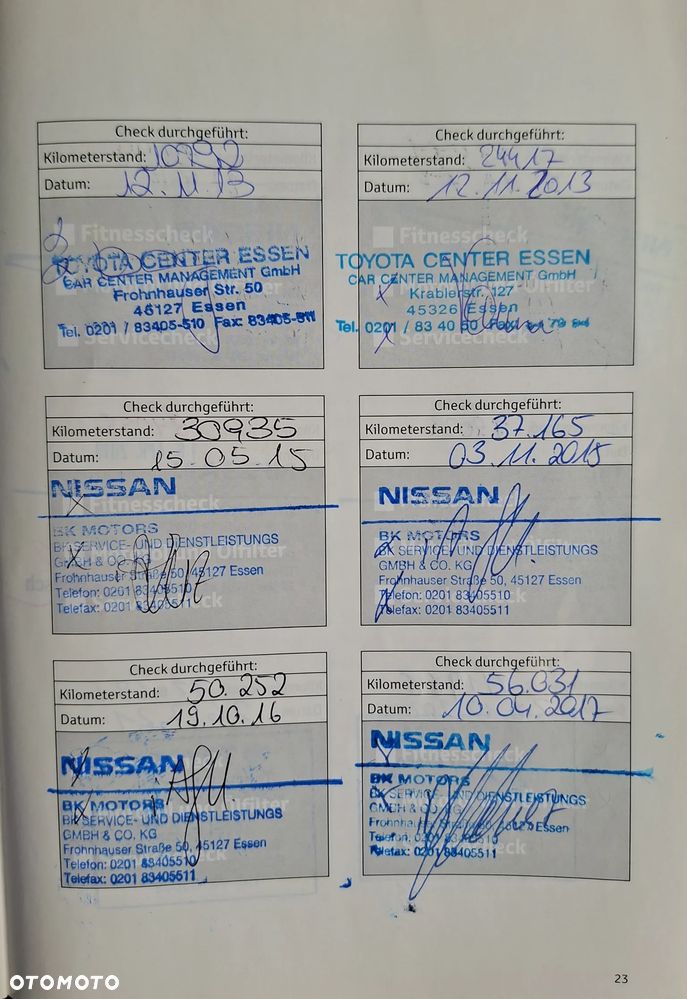 Check durchgeführt:
Kilometerstand: 10792
Datum: 12.11.13
Fitnesscheck
TOYOTA CENTER ESSEN
CAR CENTER MANAGEMENT GmbH
Frohnhauser Str. 50
45127 Essen
Tel. 0201 / 83405-510 Fax: 83405-511
Servicecheck
Check durchgeführt:
Kilometerstand: 24417
Datum: 12.11.2013
Fitnesscheck
TOYOTA CENTER ESSEN
CAR CENTER MANAGEMENT GmbH
Krablerstr. 127
45326 Essen
Tel. 0201 / 83 40 50
Servicecheck
Check durchgeführt:
Kilometerstand: 30935
Datum: 15.05.15
NISSAN
Fitnesscheck
BK MOTORS
BK SERVICE- UND DIENSTLEISTUNGS
GMBH & CO. KG
Ölfilter
Frohnhauser Straße 50, 45127 Essen
Telefon: 0201 83405510
Telefax: 0201 83405511
Check durchgeführt:
Kilometerstand: 37.165
Datum: 03.11.2015
NISSAN
Fitnesscheck
BK MOTORS
BK SERVICE- UND DIENSTLEISTUNGS
GMBH & CO. KG
Frohnhauser Straße 50, 45127 Essen
Telefon: 0201 83405510
Telefax: 0201 83405511
Check durchgeführt:
Kilometerstand: 50.252
Datum: 19.10.16
NISSAN
BK MOTORS
BK SERVICE- UND DIENSTLEISTUNGS
GMBH & CO. KG
Frohnhauser Straße 50, 45127 Essen
Telefon: 0201 83405510
Telefax: 0201 83405511
Check durchgeführt:
Kilometerstand: 56.031
Datum: 10.04.2017
NISSAN
BK MOTORS
BK SERVICE- UND DIENSTLEISTUNGS
GMBH & CO. KG
Frohnhauser Straße 50, 45127 Essen
Telefon: 0201 83405510
Telefax: 0201 83405511
23
OTOMOTO